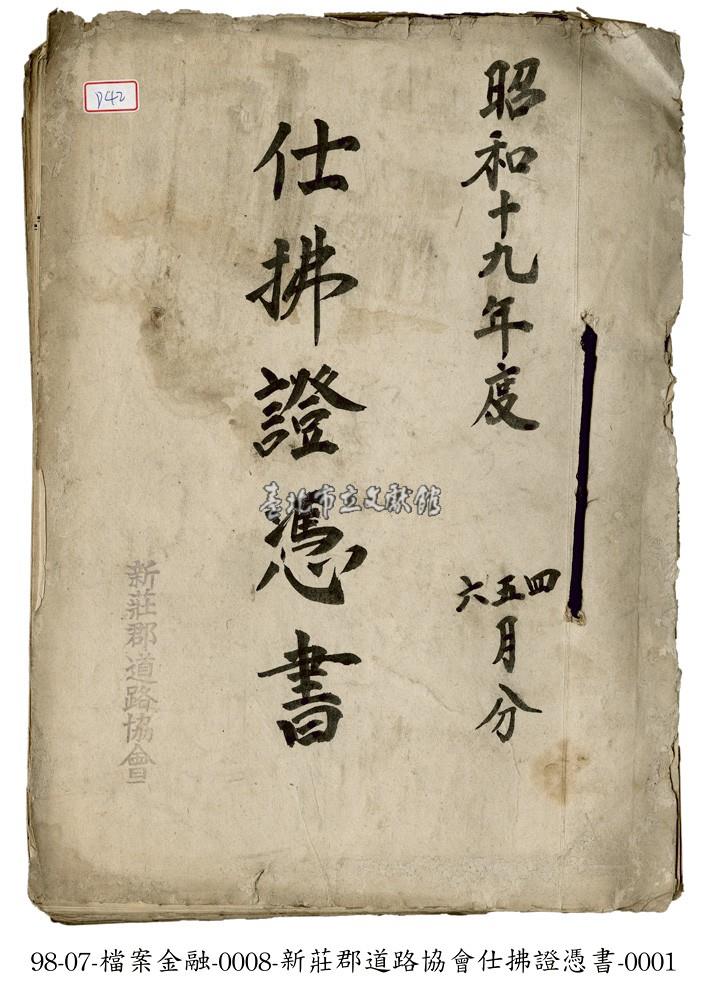 P42
昭和十九年度
四五六月分
仕拂證憑書
臺北市立文獻館
新莊郡道路協會
98-07-檔案金融-0008-新莊郡道路協會仕拂證憑書-0001